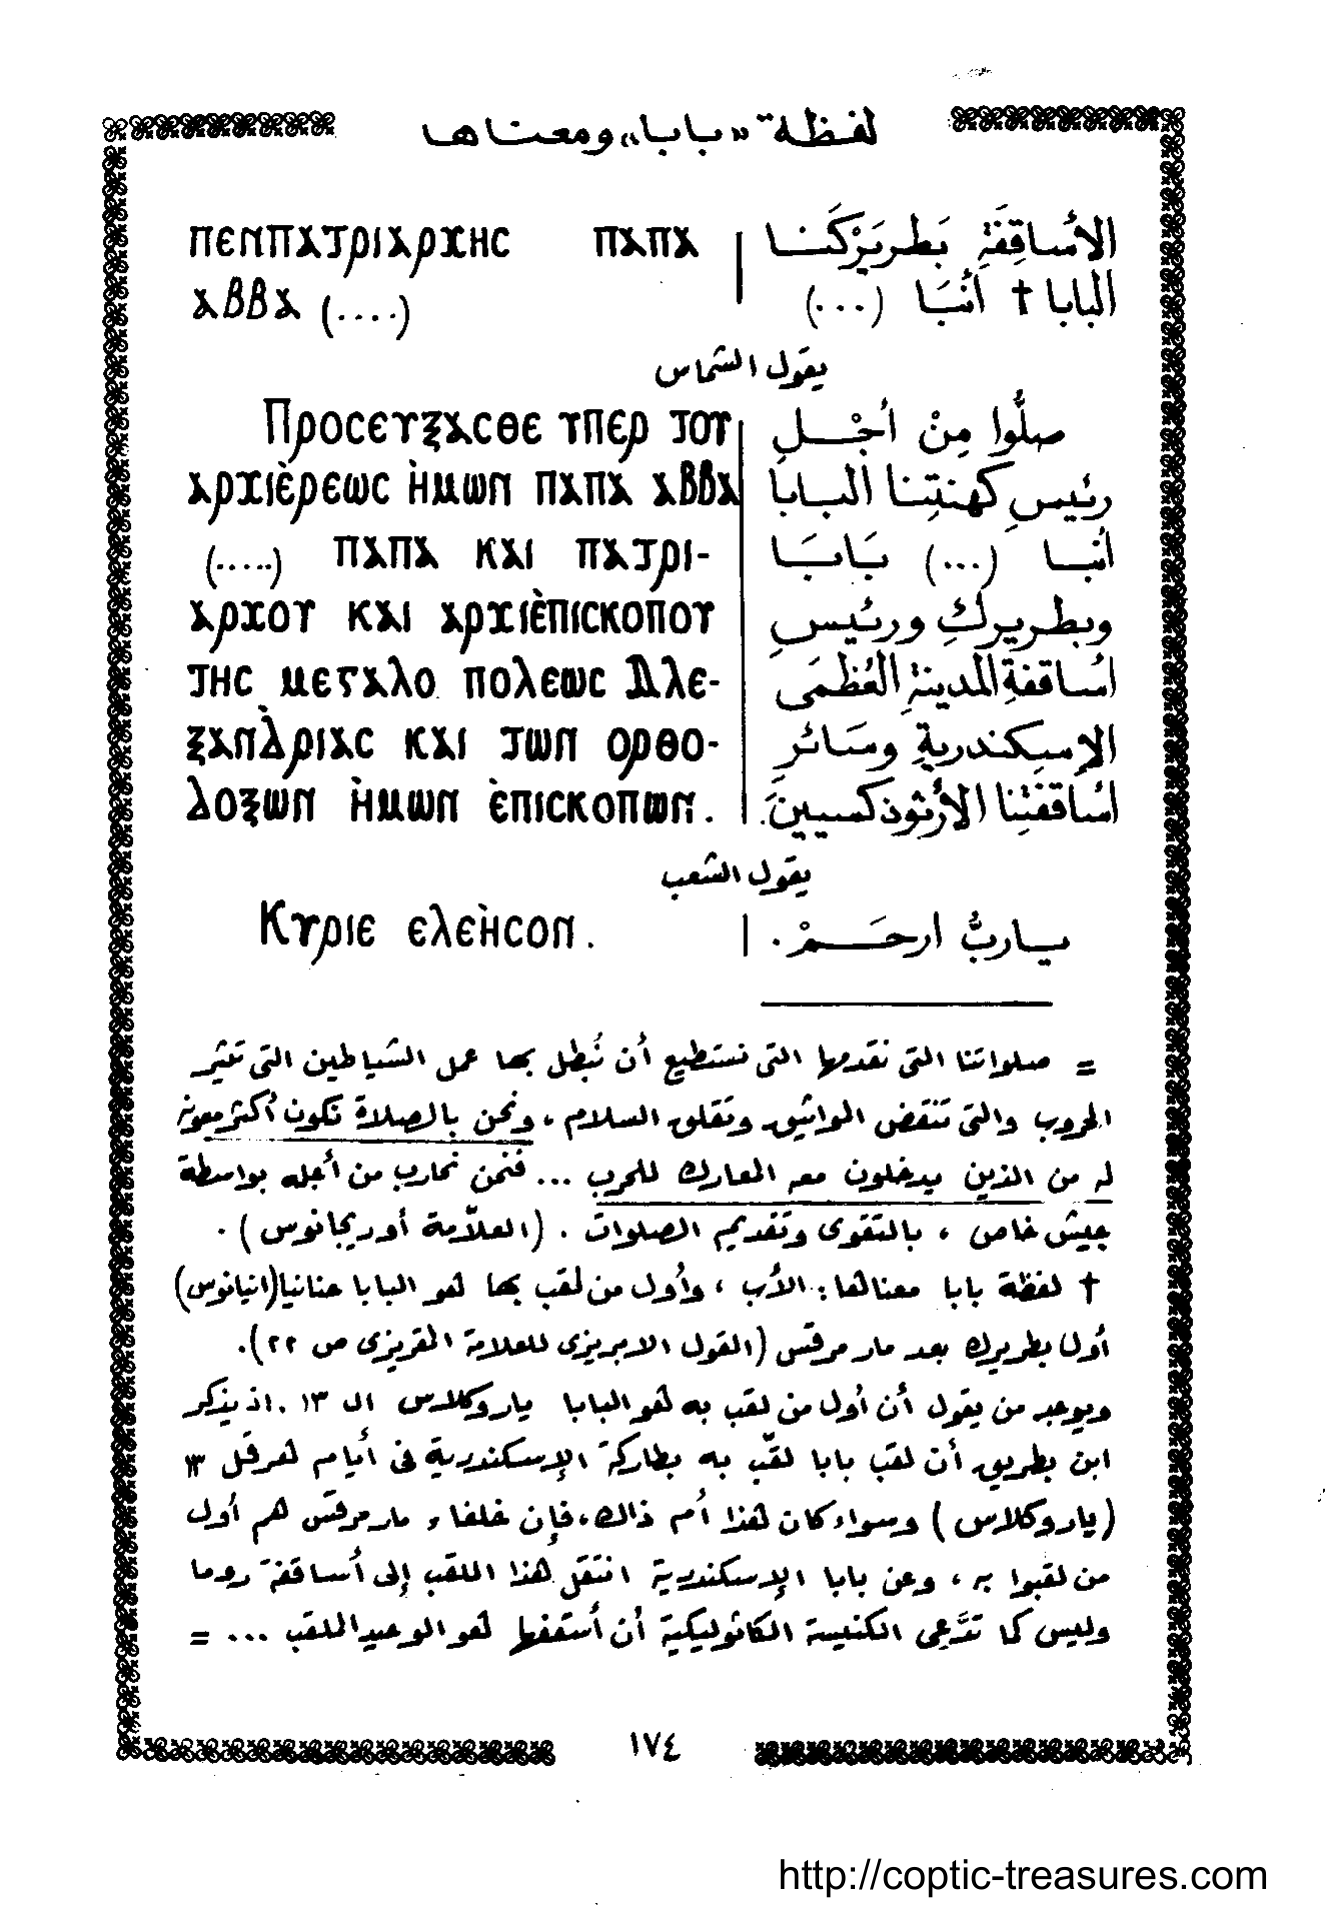 لفظة «بابا» ومعناها
ⲡⲉⲛⲡⲁⲧⲣⲓⲁⲣⲭⲏⲥ ⲡⲁⲡⲁ
ⲁⲃⲃⲁ (....)
الأساقِفَةِ بَطريَرْكَنا
البابا † أنْبَا (...)
يقول الشماس
Ⲡⲣⲟⲥⲉⲩⲝⲁⲥⲑⲉ ⲩⲡⲉⲣ ⲧⲟⲩ
ⲁⲣⲭⲓⲉ̀ⲣⲉⲱⲥ ⲏ̀ⲙⲱⲛ ⲡⲁⲡⲁ ⲁⲃⲃⲁ
(.....) ⲡⲁⲡⲁ ⲕⲁⲓ ⲡⲁⲧⲣⲓ-
ⲁⲣⲭⲟⲩ ⲕⲁⲓ ⲁⲣⲭⲓⲉ̀ⲡⲓⲥⲕⲟⲡⲟⲩ
ⲧⲏⲥ ⲙⲉⲅⲁⲗⲟ ⲡⲟⲗⲉⲱⲥ Ⲁⲗⲉ-
ⲝⲁⲛⲇ̀ⲣⲓⲁⲥ ⲕⲁⲓ ⲧⲱⲛ ⲟⲣⲑⲟ-
ⲇⲟⲝⲱⲛ ⲏ̀ⲙⲱⲛ ⲉ̀ⲡⲓⲥⲕⲟⲡⲱⲛ.
صلُّوا مِنْ أجْلِ
رئيسِ كهنتِنا البابا
أنبا (...) بَابَا
وبطريركِ ورئيسِ
أساقفةِ المدينةِ العُظمَى
الإسكندريةِ وسَائرِ
أساقفتِنا الأرثوذكسيينَ.
يقول الشعب
Ⲕⲩⲣⲓⲉ ⲉⲗⲉⲏ̀ⲥⲟⲛ.
ياربُّ ارحَمْ.
= صلواتنا التى نقدمها التى نستطيع أن نُبطل بها عمل الشياطين التى تثير
الحروب والتى تنقض المواثيق وتقلق السلام ، ونحن بالصلاة نكون أكثر معونة
له من الذين يدخلون معه المعارك للحرب ... فنحن نحارب من أجله بواسطة
جيش خاص ، بالتقوى وتقديم الصلوات . (العلاّمة أوريجانوس) .
† لفظة بابا معناها : الأب ، وأول من لقب بها هو البابا حنانيا (انيانوس)
أول بطريرك بعد مار مرقس (القول الابريزى للعلامة المقريزى ص ٢٢).
ويوجد من يقول أن أول من لقب به هو البابا ياروكلاس ال ١٣ . اذ يذكر
ابن بطريق أن لقب بابا لقّب به بطاركة الإسكندرية فى أيام هرقل ١٣
(ياروكلاس) وسواء كان هذا أم ذاك، فإن خلفاء مار مرقس هم أول
من لقبوا به ، وعن بابا الإسكندرية انتقل هذا اللقب إلى أساقفة روما
وليس كما تدَّعى الكنيسة الكاثوليكية أن أسقفها هو الوحيد الملقب ... =
١٧٤
http://coptic-treasures.com